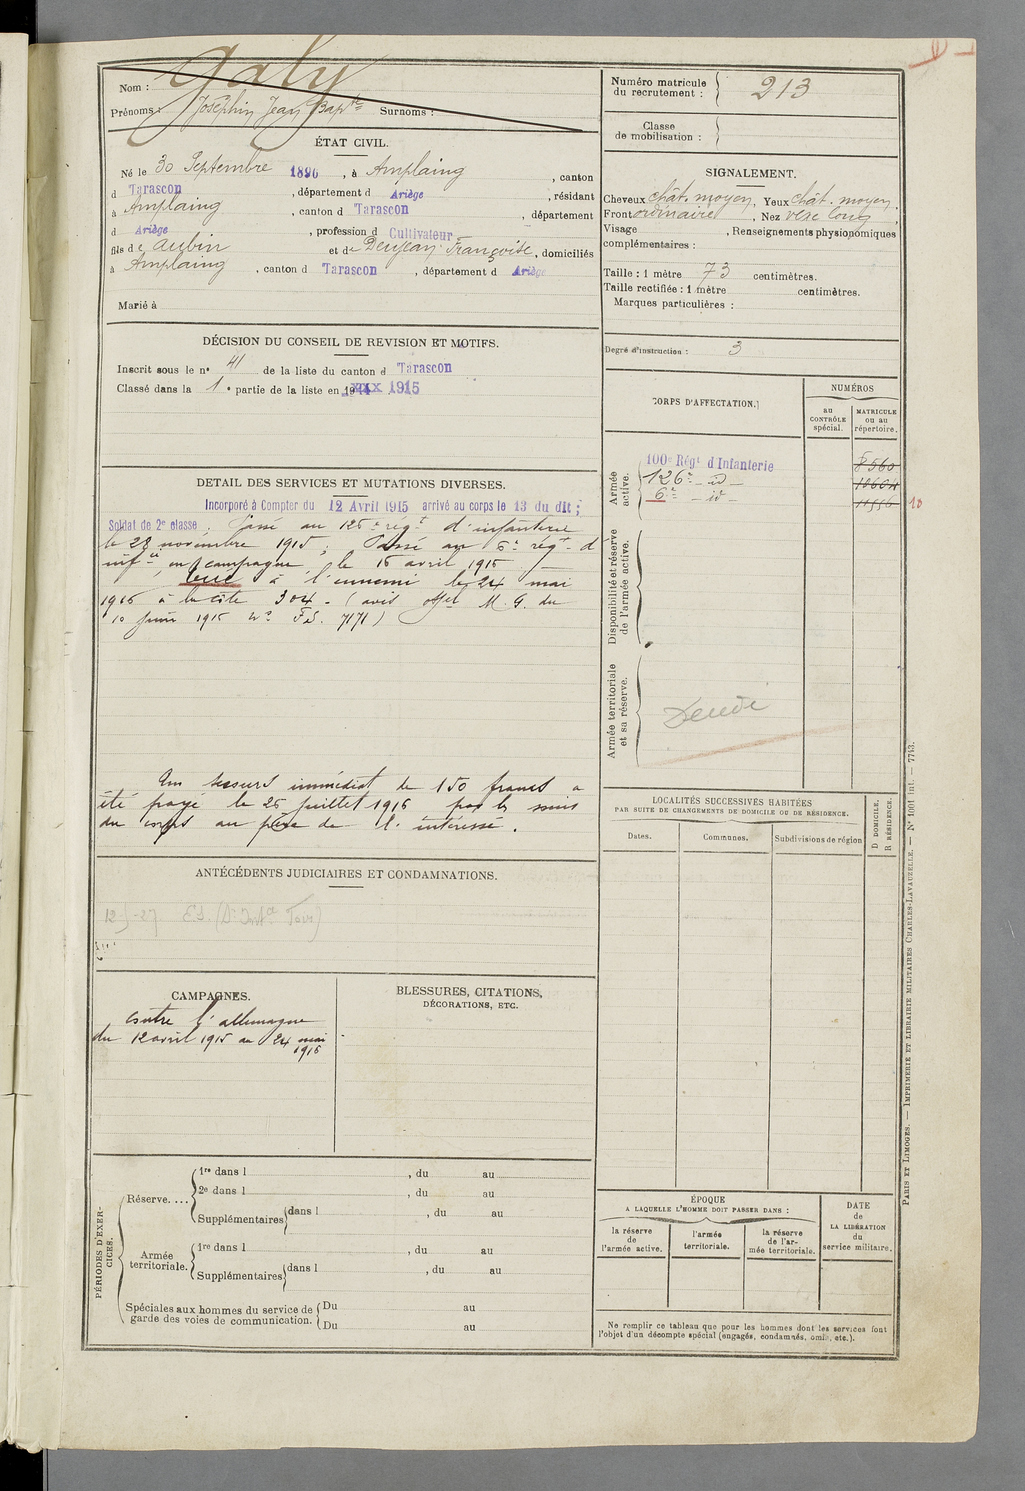 Nom : Galy
Prénoms : Joséphin Jean Bapte Surnoms :
ÉTAT CIVIL.
Né le 30 Septembre 1896, à Amplaing, canton
d Tarascon, département d Ariège, résidant
à Amplaing, canton d Tarascon, département
d Ariège, profession d Cultivateur
fils de Aubin et de Françoise, domiciliés
à Amplaing, canton d Tarascon, département d Ariège
Marié à
DÉCISION DU CONSEIL DE REVISION ET MOTIFS.
Inscrit sous le n° 41 de la liste du canton d Tarascon
Classé dans la 1e partie de la liste en 1915
DETAIL DES SERVICES ET MUTATIONS DIVERSES.
Incorporé à Compter du 12 Avril 1915 arrivé au corps le 13 du dit ;
Soldat de 2e classe. Passé au 126e régt d'infanterie
le 28 novembre 1915 ; Passé au 6e régt d
infie en campagne le 16 avril 1916
tué à l'ennemi le 24 mai
1916 à la côte 304 - (avis offel M. G. du
10 juin 1916 n° F.S. 7171)
Un secours immédiat de 150 francs a
été payé le 26 juillet 1916 par les soins
du corps au père de l'intéressé.
ANTÉCÉDENTS JUDICIAIRES ET CONDAMNATIONS.
CAMPAGNES.
contre l'allemagne
du 12 avril 1915 au 24 mai
1916
BLESSURES, CITATIONS,
DÉCORATIONS, ETC.
PÉRIODES D'EXER-
CICES.
Réserve....
1re dans l , du au
2e dans l , du au
Supplémentaires dans l , du au
Armée
territoriale.
1re dans l , du au
Supplémentaires dans l , du au
Spéciales aux hommes du service de
garde des voies de communication.
Du au
Du au
Numéro matricule
du recrutement : 213
Classe
de mobilisation :
SIGNALEMENT.
Cheveux chât. moyen, Yeux chât. moyen,
Front ordinaire, Nez vexe long
Visage , Renseignements physionomiques
complémentaires :
Taille : 1 mètre 73 centimètres.
Taille rectifiée : 1 mètre centimètres.
Marques particulières :
Degré d'instruction : 3
CORPS D'AFFECTATION.
NUMÉROS
au
CONTRÔLE
spécial.
MATRICULE
ou au
répertoire.
Armée
active.
100e Régt d Infanterie 8560
126e - id -
6e - id - 11556
10
Disponibilité et réserve
de l'armée active.
Armée territoriale
et sa réserve.
LOCALITÉS SUCCESSIVES HABITÉES
PAR SUITE DE CHANGEMENTS DE DOMICILE OU DE RÉSIDENCE.
Dates.
Communes.
Subdivisions de région
D DOMICILE.
R RÉSIDENCE.
ÉPOQUE
A LAQUELLE L'HOMME DOIT PASSER DANS :
la réserve
de
l'armée active.
l'armée
territoriale.
la réserve
de l'ar-
mée territoriale.
DATE
de
LA LIBÉRATION
du
service militaire.
Ne remplir ce tableau que pour les hommes dont les services font
l'objet d'un décompte spécial (engagés, condamnés, omis, etc.).
PARIS ET LIMOGES. — IMPRIMERIE ET LIBRAIRIE MILITAIRES CHARLES-LAVAUZELLE. — N° 1001 int. — 7743.